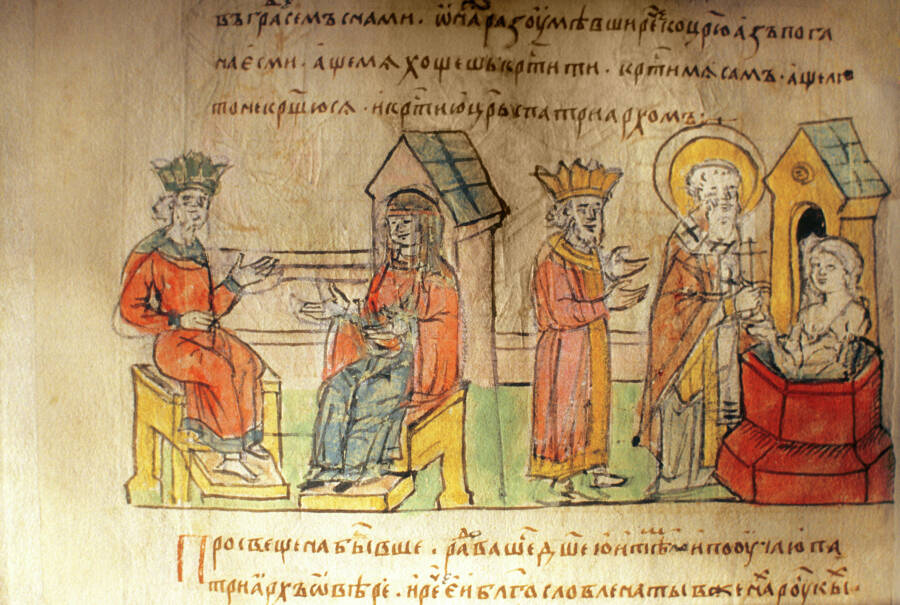 въ градѣ семъ с нами . ѡнаⷤ разоумѣвши реⷱ ко цр҃ю азъ пога
на есми . аще мѧ хощеши крⷭ҇тити . крⷭ҇ти мѧ самъ . аще ли
то не крⷭ҇щюсѧ . и крⷭ҇ти ю цр҃ь с патриархомъ :
Просвѣщена бывше . радовашесѧ дш҃ею и тѣломъ и пооучи ю па
триархъ ѡ вѣре . и реⷱ еи блгⷭ҇ословлена ты в женаⷯ роускиⷯ .